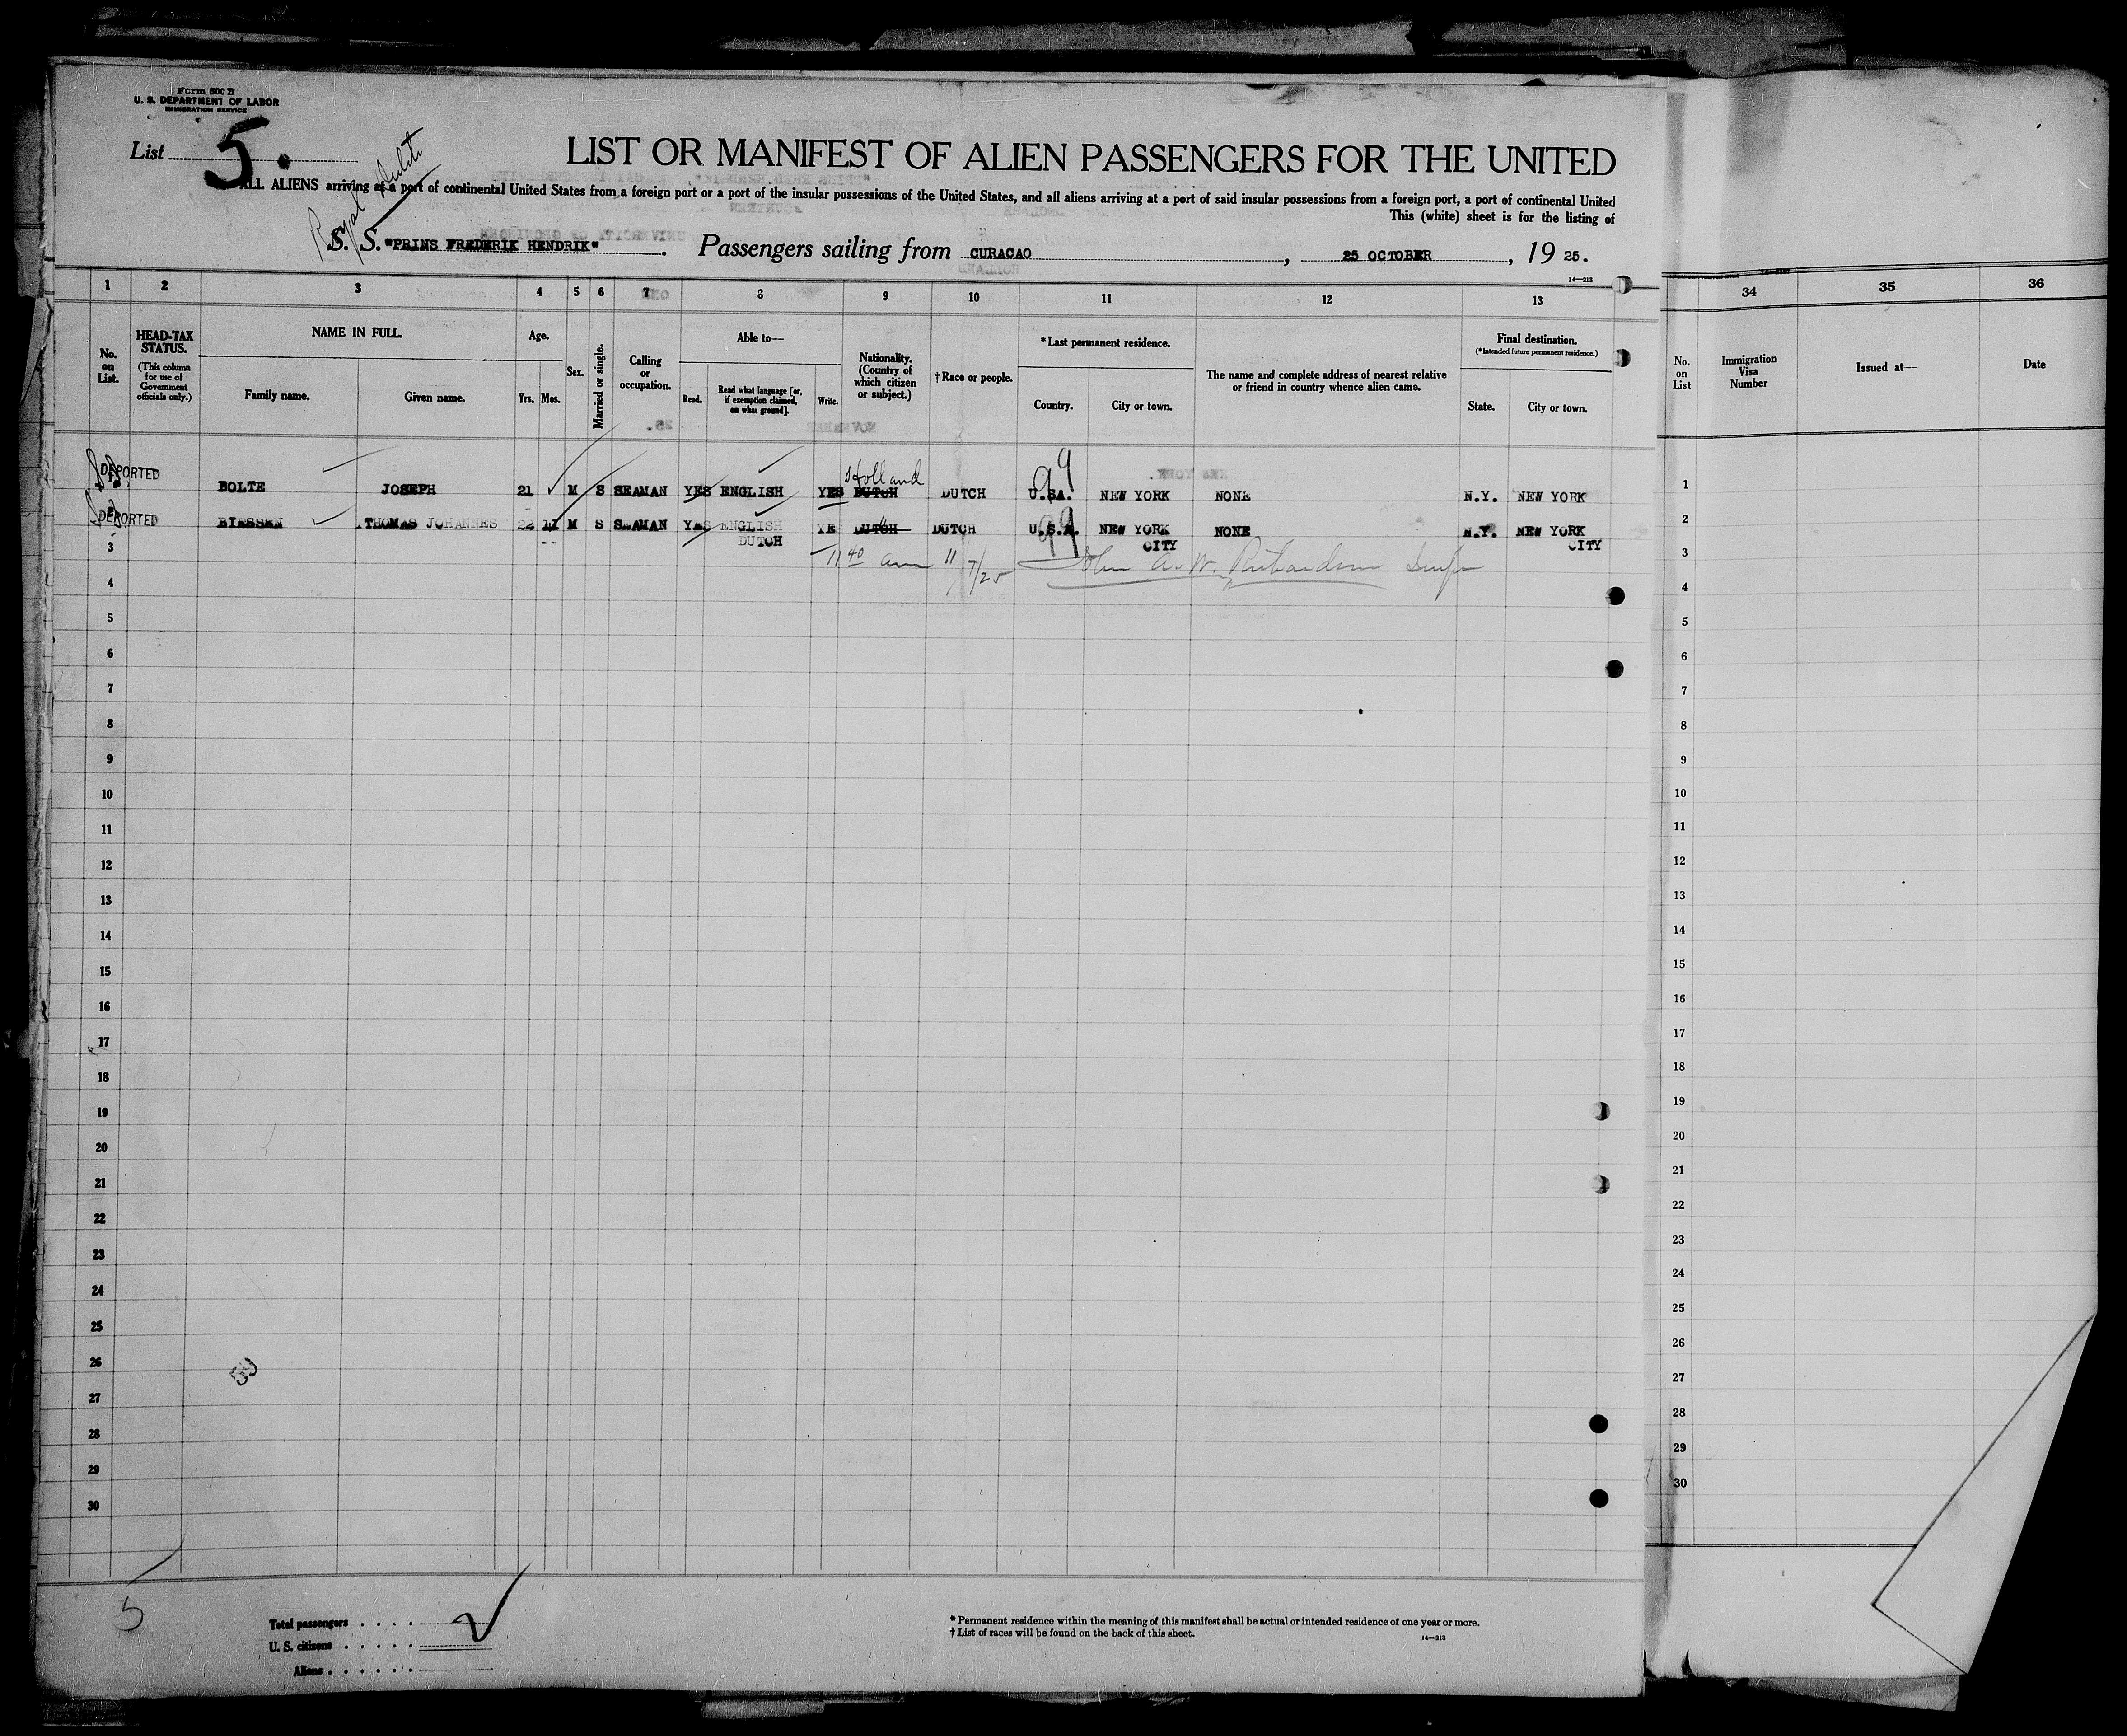 Form 500 B
U. S. DEPARTMENT OF LABOR
IMMIGRATION SERVICE
List 5.
LIST OR MANIFEST OF ALIEN PASSENGERS FOR THE UNITED
ALL ALIENS arriving at a port of continental United States from a foreign port or a port of the insular possessions of the United States, and all aliens arriving at a port of said insular possessions from a foreign port, a port of continental United
This (white) sheet is for the listing of
Royal Dutch
S. S. "PRINS FREDERIK HENDRIK". Passengers sailing from CURACAO, 25 OCTOBER, 19 25.
14—213
1 2 3 4 5 6 7 8 9 10 11 12 13
34 35 36
No. on List.
HEAD-TAX STATUS.
(This column for use of Government officials only.)
NAME IN FULL.
Family name. Given name.
Age.
Yrs. Mos.
Sex.
Married or single.
Calling or occupation.
Able to—
Read. Read what language [or, if exemption claimed, on what ground]. Write.
Nationality. (Country of which citizen or subject.)
†Race or people.
*Last permanent residence.
Country. City or town.
The name and complete address of nearest relative or friend in country whence alien came.
Final destination.
(*Intended future permanent residence.)
State. City or town.
No. on List
Immigration Visa Number
Issued at—
Date
DEPORTED
Holland
99
BOLTE JOSEPH 21 M S SEAMAN YES ENGLISH YES DUTCH DUTCH U.SA. NEW YORK NONE N.Y. NEW YORK
DEPORTED
99
THOMAS JOHANNES 22 11 M S SEAMAN YES ENGLISH YE DUTCH DUTCH U.S.A. NEW YORK NONE N.Y. NEW YORK
DUTCH CITY CITY
11 40 am 11/7/25 John A. W. Richardson Insp
1
2
3
4
5
6
7
8
9
10
11
12
13
14
15
16
17
18
19
20
21
22
23
24
25
26
27
28
29
30
1
2
3
4
5
6
7
8
9
10
11
12
13
14
15
16
17
18
19
20
21
22
23
24
25
26
27
28
29
30
59
5
Total passengers . . . . 2
U. S. citizens . . . . .
Aliens . . . . . .
* Permanent residence within the meaning of this manifest shall be actual or intended residence of one year or more.
† List of races will be found on the back of this sheet.
14—213